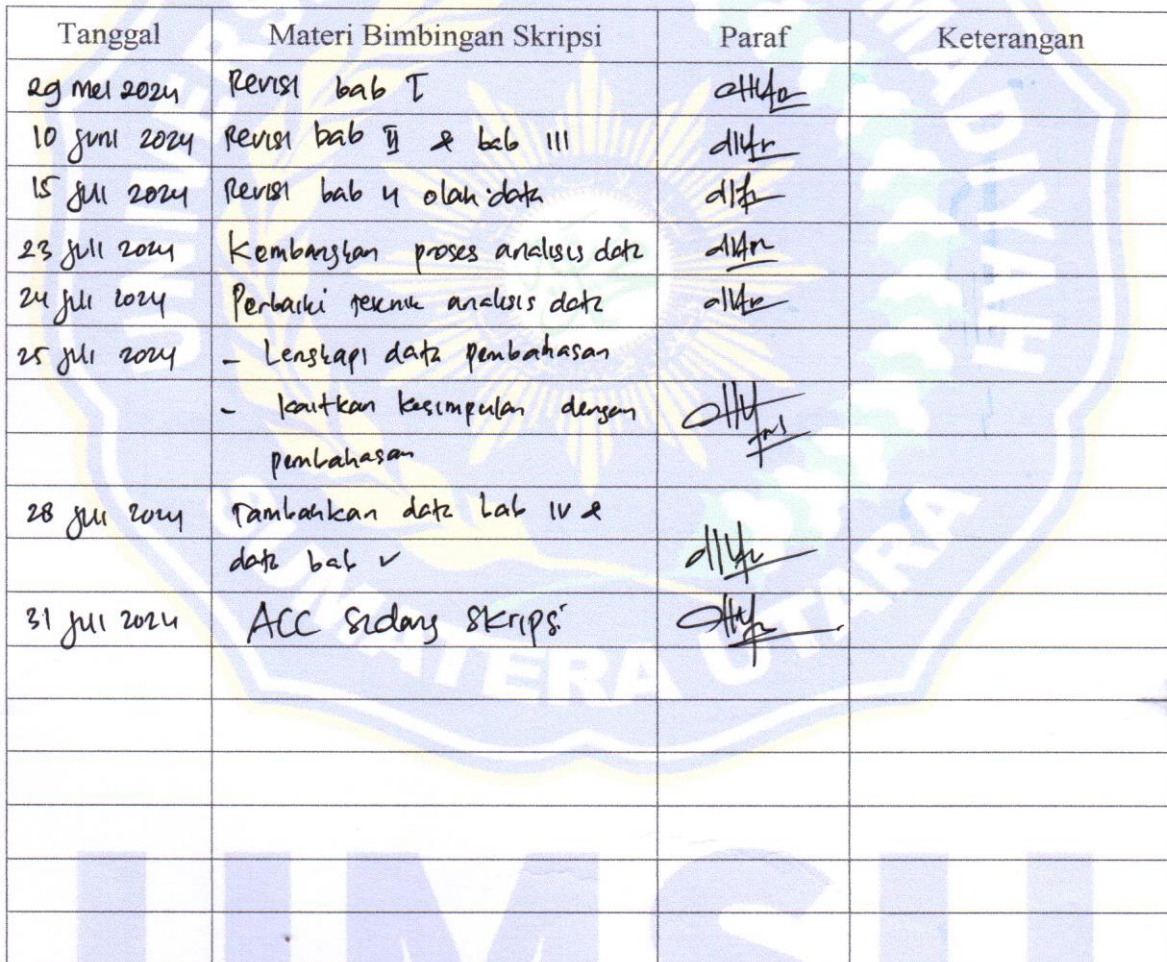 Tanggal Materi Bimbingan Skripsi Paraf Keterangan
29 mei 2024 Revisi bab I
10 juni 2024 Revisi bab II & bab III
15 juli 2024 Revisi bab 4 olah data
23 juli 2024 Kembangkan proses analisis data
24 juli 2024 Perbaiki teknik analisis data
25 juli 2024 - Lengkapi data pembahasan
- kaitkan kesimpulan dengan
pembahasan
28 juli 2024 Tambahkan data bab IV &
data bab V
31 juli 2024 ACC sidang skripsi
UNIVERSITAS MUHAMMADIYAH
SUMATERA UTARA
UMSU